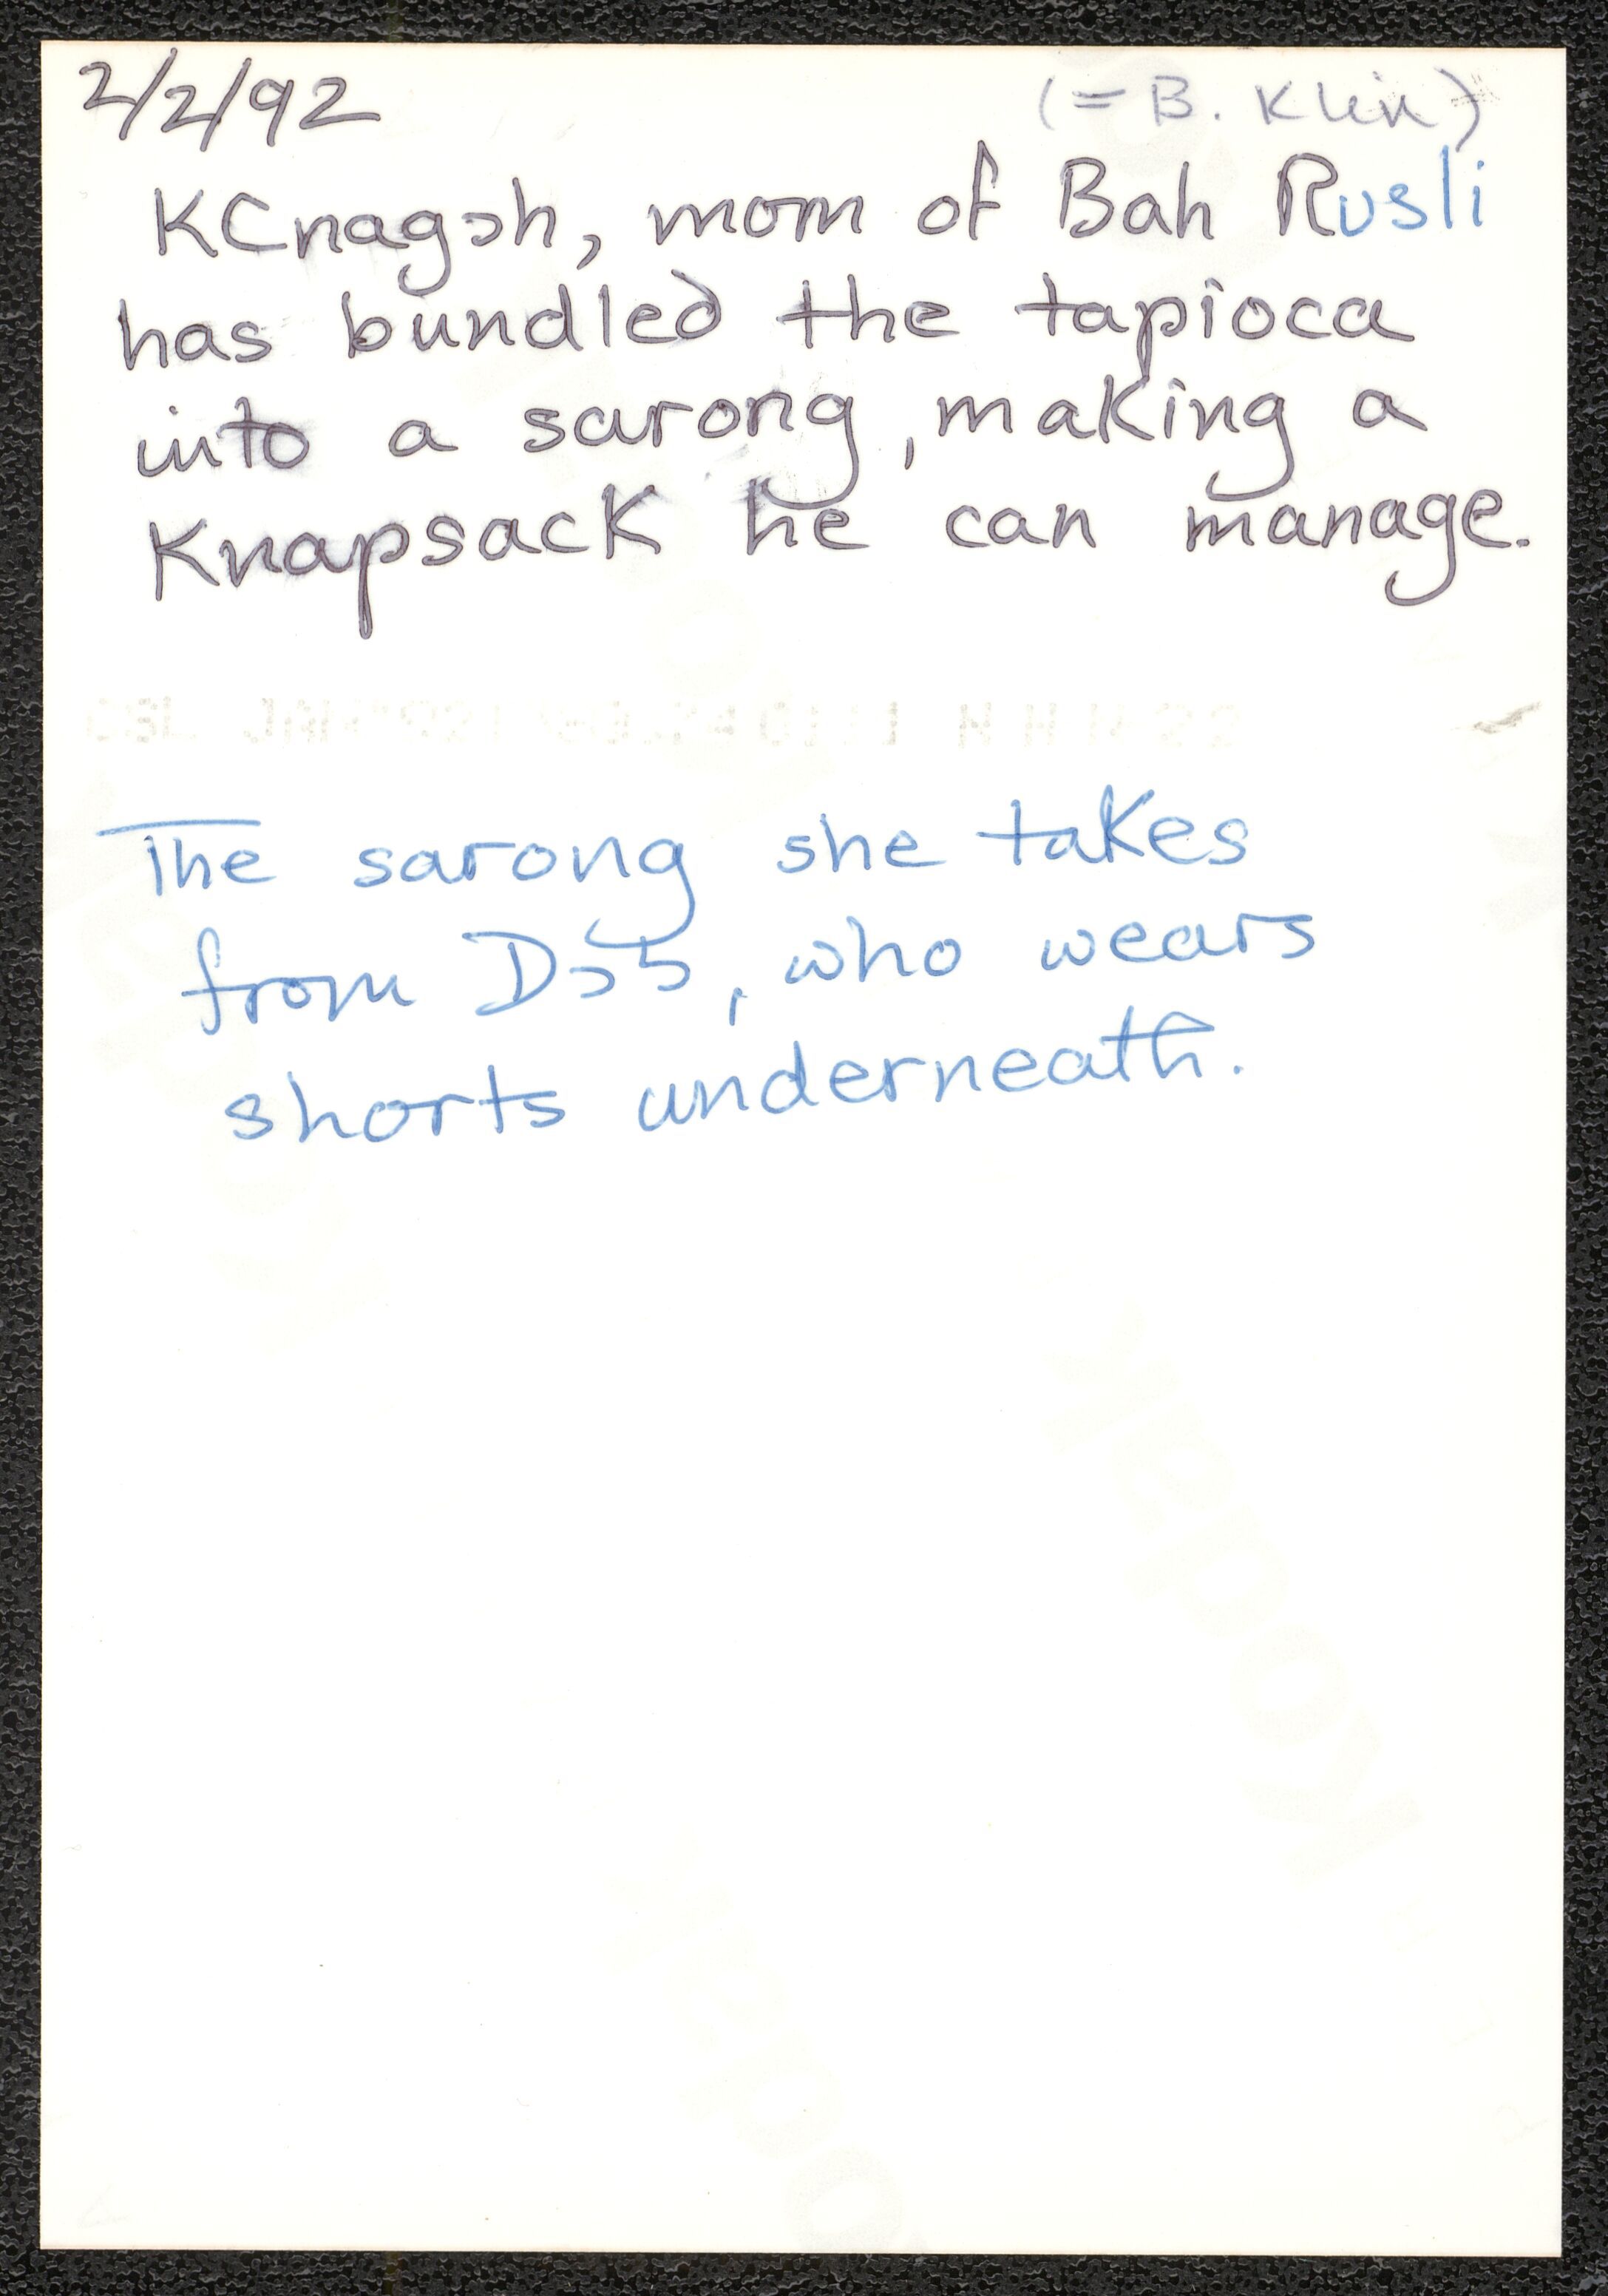 2/2/92
(= B. Klin)
KCnagɔh, mom of Bah Rusli
has bundled the tapioca
into a sarong, making a
Knapsack he can manage.
The sarong she takes
from Dɔ5, who wears
shorts underneath.